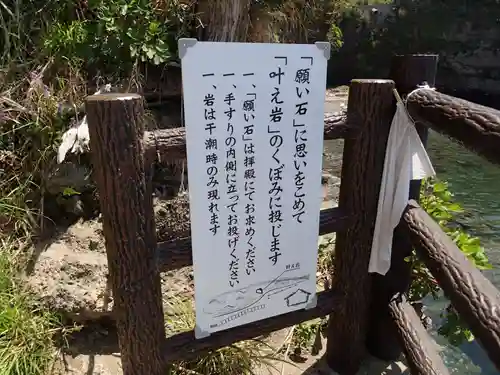 「願い石」に思いをこめて
「叶え岩」のくぼみに投じます。
一、「願い石」は拝殿にてお求めください
一、手すりの内側に立ってお投げください
一、岩は干潮時のみ現れます